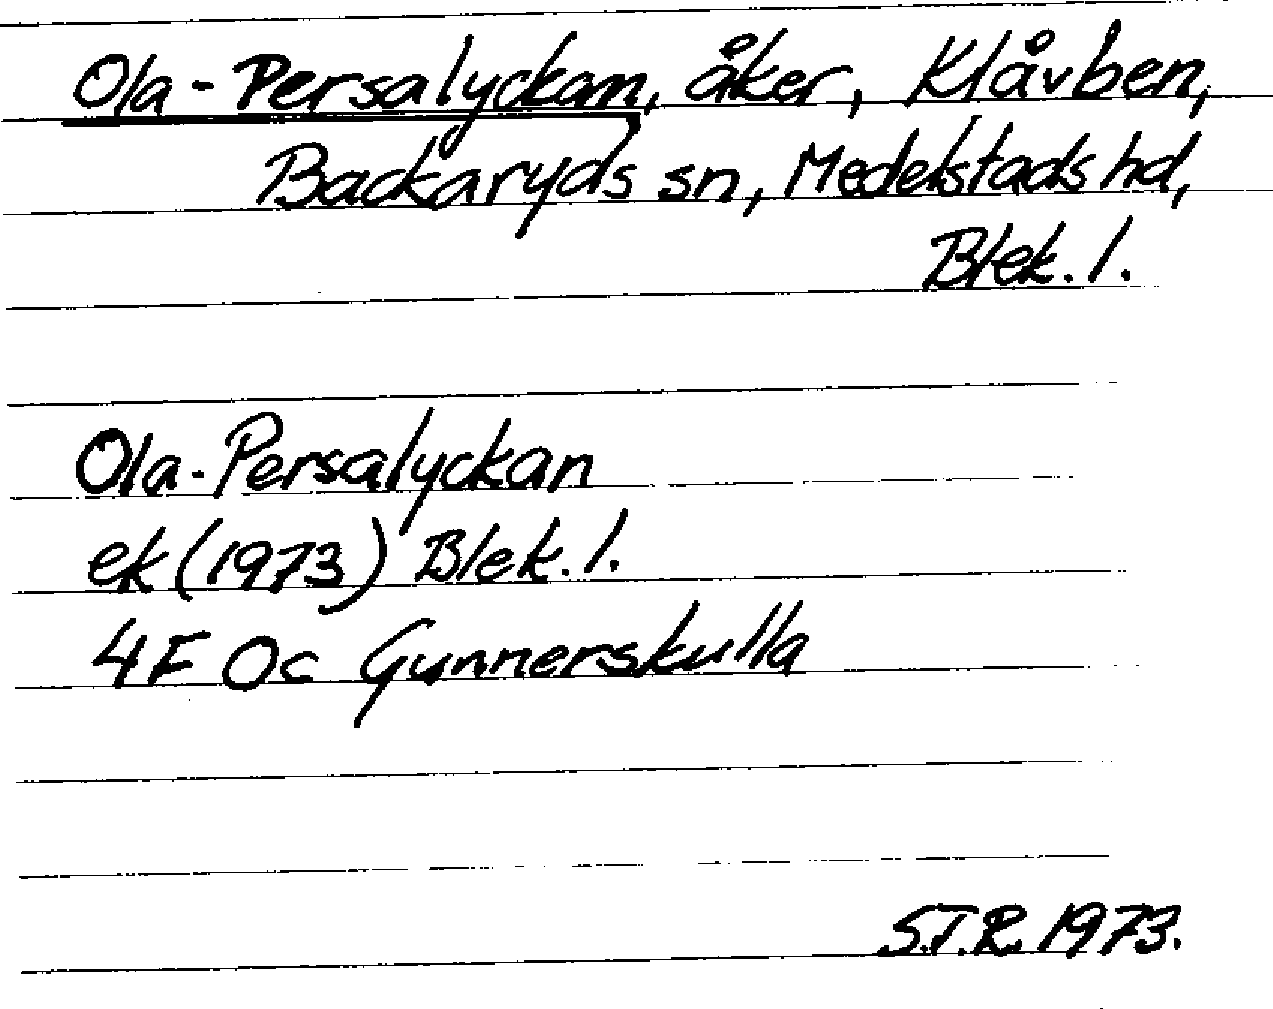 Ola-Persalyckan, åker, Klåvben,
Backaryds sn, Medelstads hd,
Blek. l.
Ola-Persalyckan
ek (1973) Blek. l.
4F Oc Gunnerskulla
S.T.R. 1973.